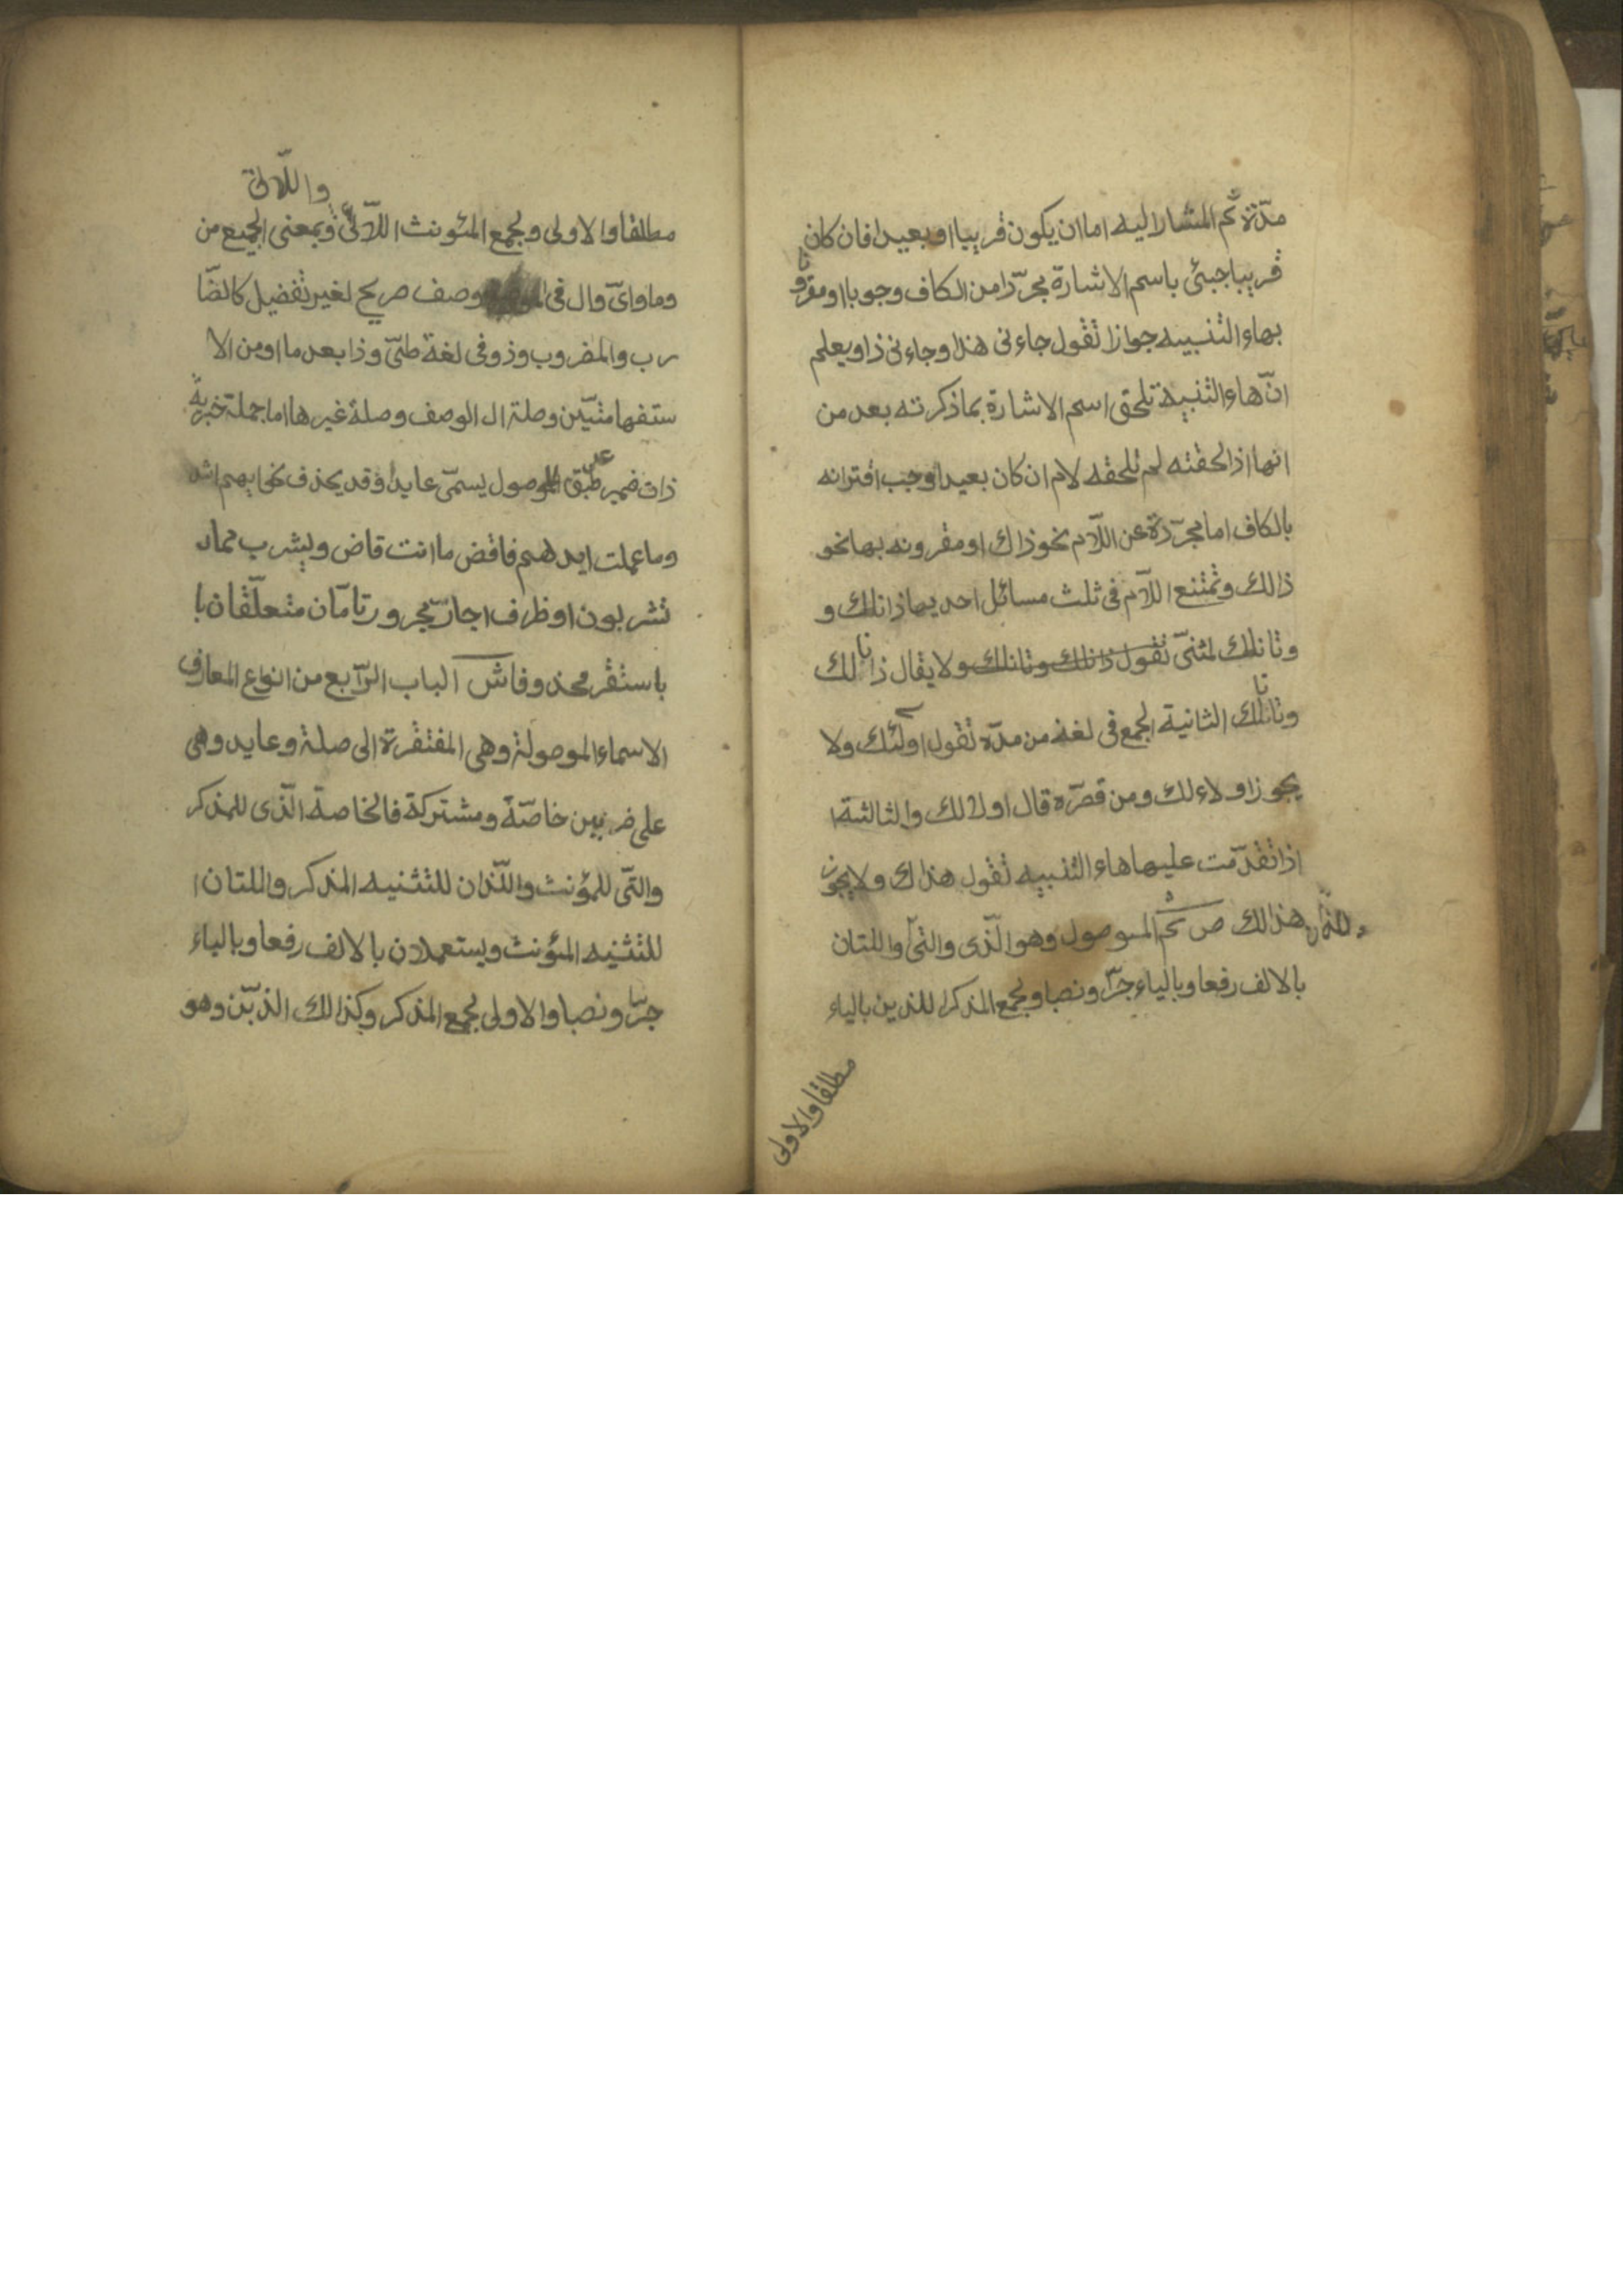 مدّة ثم المشار اليه اما ان يكون قريبا او بعيدا فان كان
قريبا جيئ باسم الاشارة مجرّدا من الكاف وجوبا او مقرونا
بهاء التنبيه جوازا تقول جاءنى هذا وجاءنى ذا ويعلم
انّ هاء التنبيه تلحق اسم الاشارة بما ذكرته بعد من
انها اذا لحقته لم تلحقه لام ان كان بعيدا وجب اقترانه
بالكاف اما مجرّدة عن اللّام نحو ذاك او مقرونه بها نحو
ذالك وتمتنع اللّام فى ثلث مسائل احديها ذانك و
وتانك لمثنىّ تقول ذانك وتانك ولا يقال ذانا لك
وتانا لك الثانية الجمع فى لغة من مدّه تقول اولئك ولا
يجوز اولاء لك ومن قصّره قال اولا لك والثالثة ا
اذا تقدّمت عليها هاء التنبيه تقول هذاك ولا يجوز
هذا لك ص ثم الموصول وهو الّذى والتى واللذان واللتان
بالالف رفعا وبالياء جرّا ونصبا ولجمع المذكر الذين بالياء
مطلقا والاولى
واللّاتى
مطلقا والاولى ولجمع المئونث اللّائى وبمعنى الجميع من
وما واىّ وال فى وصف صريح لغير تفضيل كالضّا
رب والمضروب وذو فى لغة طىّ وذا بعد ما او من الا
ستفهامتيّين وصلة ال الوصف وصلة غيرها اما جملة خبرية
ذات ضمير طبق للموصول يسمّى عايدا وقد يحذف نحو ايهم اشد
وما عملت ايديهم فاقض ما انت قاض ويشرب مما
تشربون او ظرف او جارّ مجرور تامّان متعلّقان با
باستقر محذوفا ش الباب الرّابع من انواع المعارف
الاسماء الموصولة وهى المفتقرة الى صلة وعايد وهى
على ضربين خاصّة ومشتركة فالخاصة الّذى للمذكر
والتّى للمؤنث واللّذان للتثنيه المذكر واللتان ا
للتثنيه المئونث ويستعملان بالالف رفعا وبالياء
جرّا ونصبا والاولى لجمع المذكر وكذالك الذين وهو